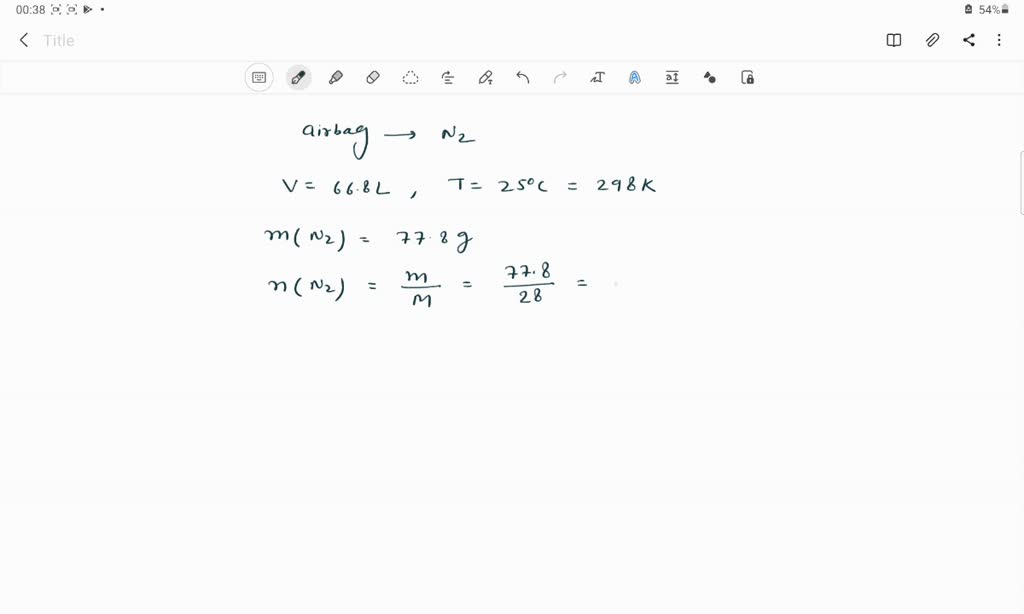 00:38 54%
Title
airbag → N2
V = 66.8L , T = 25°C = 298K
m(N2) = 77.8g
n(N2) = m/M = 77.8/28 =